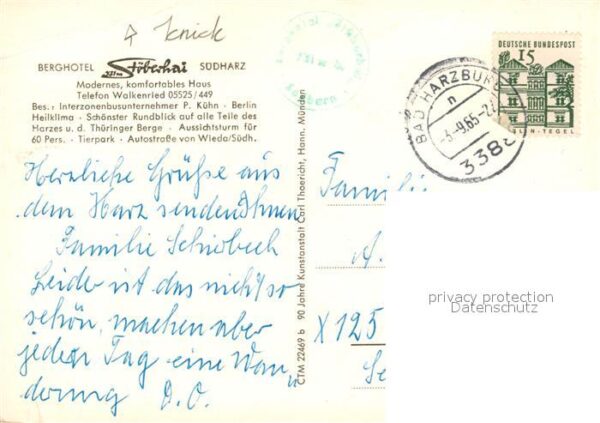 Knick
BERGHOTEL Stöberhai SÜDHARZ
Modernes, komfortables Haus
Telefon Walkenried 05525/449
Bes.: Interzonenbusunternehmer P. Kühn · Berlin
Heilklima · Schönster Rundblick auf alle Teile des
Harzes u. d. Thüringer Berge · Aussichtsturm für
60 Pers. · Tierpark · Autostraße von Wieda/Südh.
Herzliche Grüße aus
dem Harz senden Ihnen
Familie
Leider ist das nicht so
schön, machen aber
jeden Tag eine Wan
derung
CTM 22469 b 90 Jahre Kunstanstalt Carl Thoericht, Hann. Münden
DEUTSCHE BUNDESPOST
15
BERLIN-TEGEL
BAD HARZBURG
n
-3.-9.65-2
338
Famili
A.
X 125
Se
privacy protection
Datenschutz